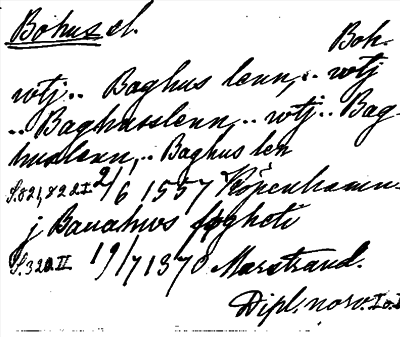 Bohus el.
Boh-
wtj.. Baghus lenn,.. wtj
.. Baghusslenn,.. wtj.. Bag-
huslenn,.. Baghus len
S.821,822 I 2/6 1557 Köpenhamn
j Banahws fogheti
S.320.II 19/7 1370 Marstrand.
Dipl. norv. I o. II